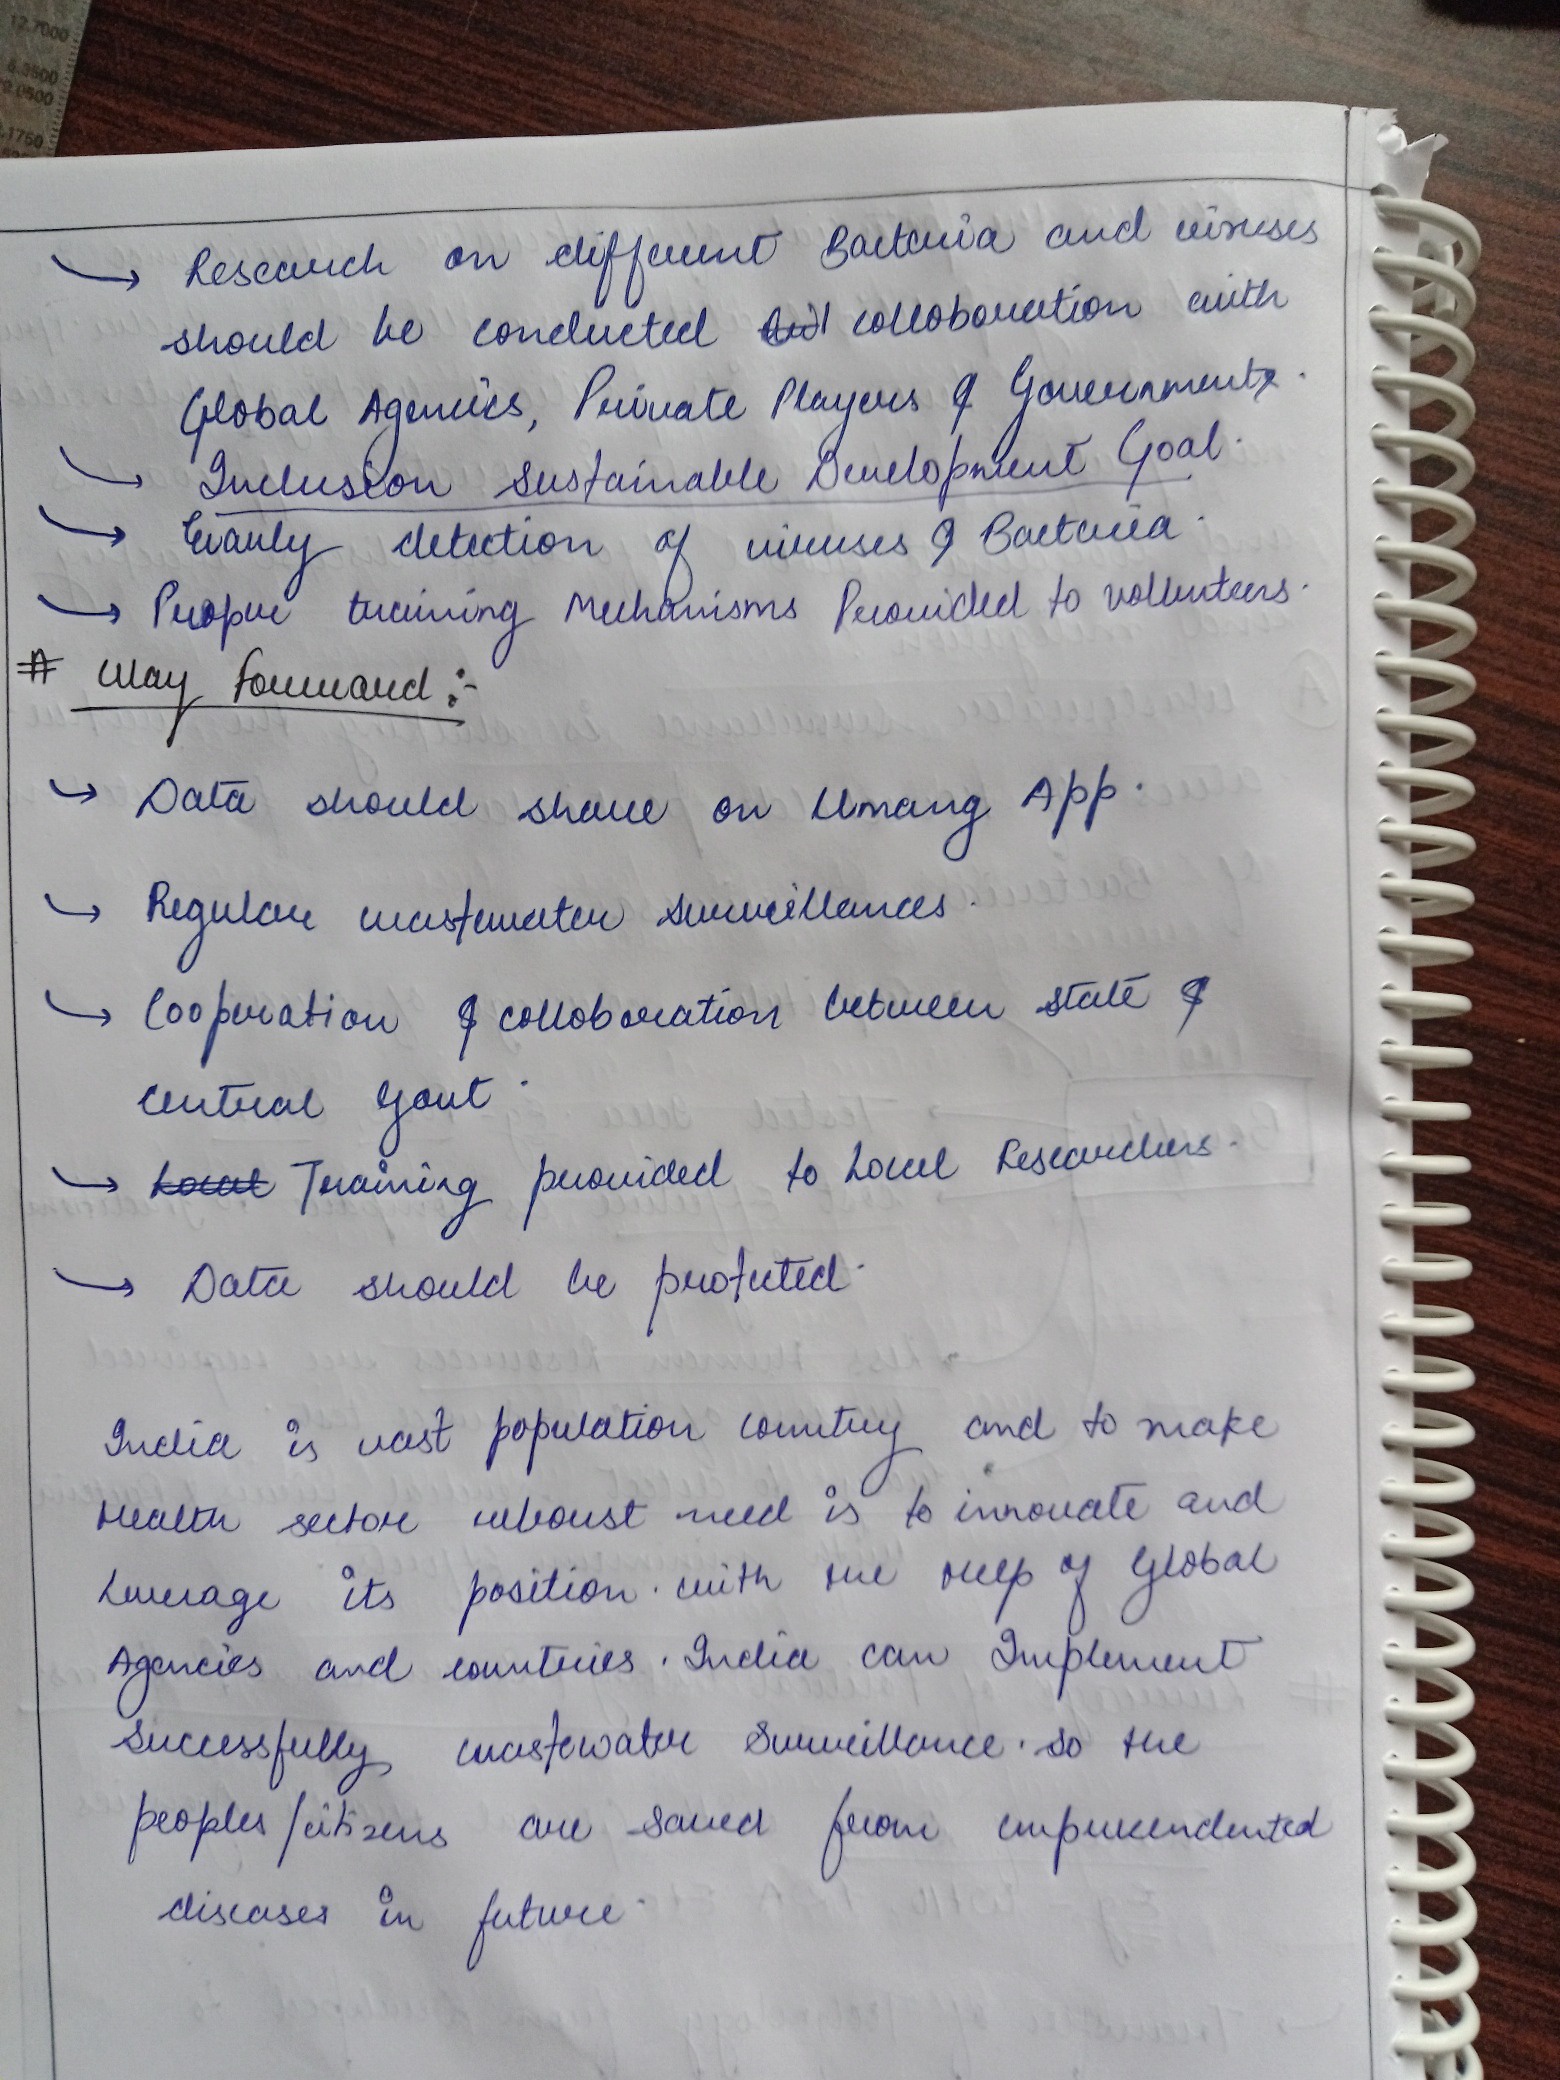 12.7000
6.3500
→ Research on different Bacteria and viruses
should be conducted colloboration with
Global Agencies, Private Players & Governments.
→ Inclusion Sustainable Development Goal.
→ Early detection of viruses & Bacteria.
→ Proper training Mechanisms Provided to vollunteers.
# Way Forward :-
→ Data should share on Umang App.
→ Regular wastewater surveillances.
→ Cooperation & colloboration between state &
central Govt.
→ Local Training provided to Local Researchers.
→ Data should be protected.
India is vast population country and to make
Health sector reboust need is to innovate and
Leverage its position. with the Help of Global
Agencies and countries. India can Implement
Successfully wastewater Surveillance. so the
peoples/citizens are saved from
diseases in future.